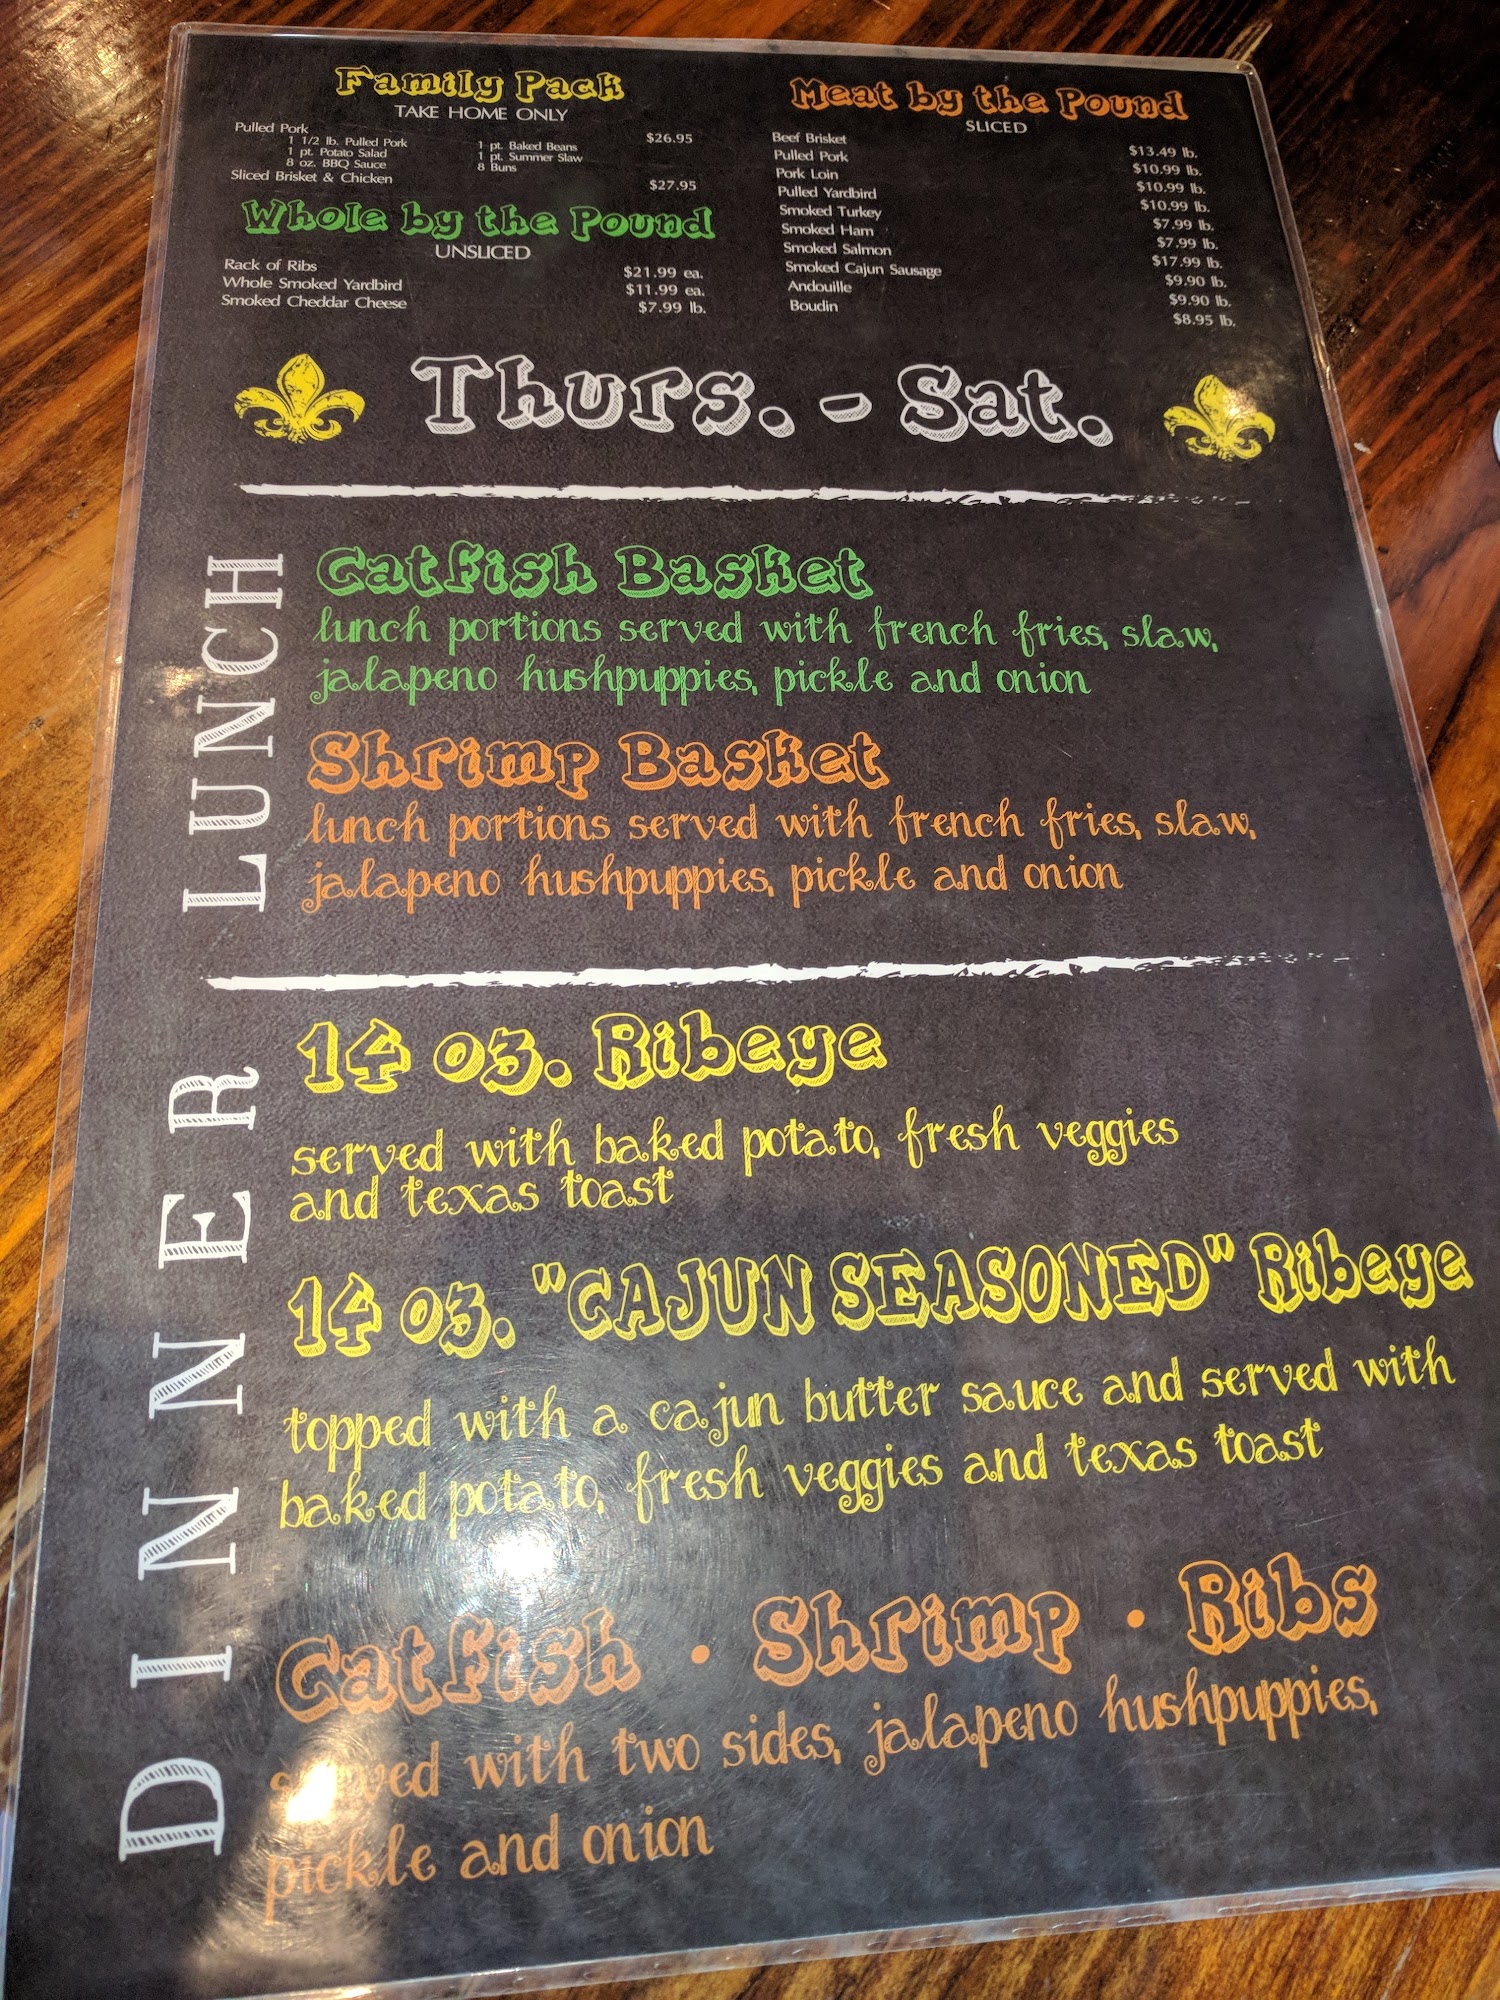 Family Pack
TAKE HOME ONLY
Pulled Pork $26.95
1 1/2 lb. Pulled Pork 1 pt. Baked Beans
1 pt. Potato Salad 1 pt. Summer Slaw
8 oz. BBQ Sauce 8 Buns
Sliced Brisket & Chicken $27.95
Whole by the Pound
UNSLICED
Rack of Ribs $21.99 ea.
Whole Smoked Yardbird $11.99 ea.
Smoked Cheddar Cheese $7.99 lb.
Meat by the Pound
SLICED
Beef Brisket $13.49 lb.
Pulled Pork $10.99 lb.
Pork Loin $10.99 lb.
Pulled Yardbird $10.99 lb.
Smoked Turkey $7.99 lb.
Smoked Ham $7.99 lb.
Smoked Salmon $17.99 lb.
Smoked Cajun Sausage $9.90 lb.
Andouille $9.90 lb.
Boudin $8.95 lb.
Thurs. - Sat.
LUNCH
Catfish Basket
lunch portions served with french fries, slaw,
jalapeno hushpuppies, pickle and onion
Shrimp Basket
lunch portions served with french fries, slaw,
jalapeno hushpuppies, pickle and onion
DINNER
14 oz. Ribeye
served with baked potato, fresh veggies
and texas toast
14 oz. "CAJUN SEASONED" Ribeye
topped with a cajun butter sauce and served with
baked potato, fresh veggies and texas toast
Catfish • Shrimp • Ribs
served with two sides, jalapeno hushpuppies,
pickle and onion